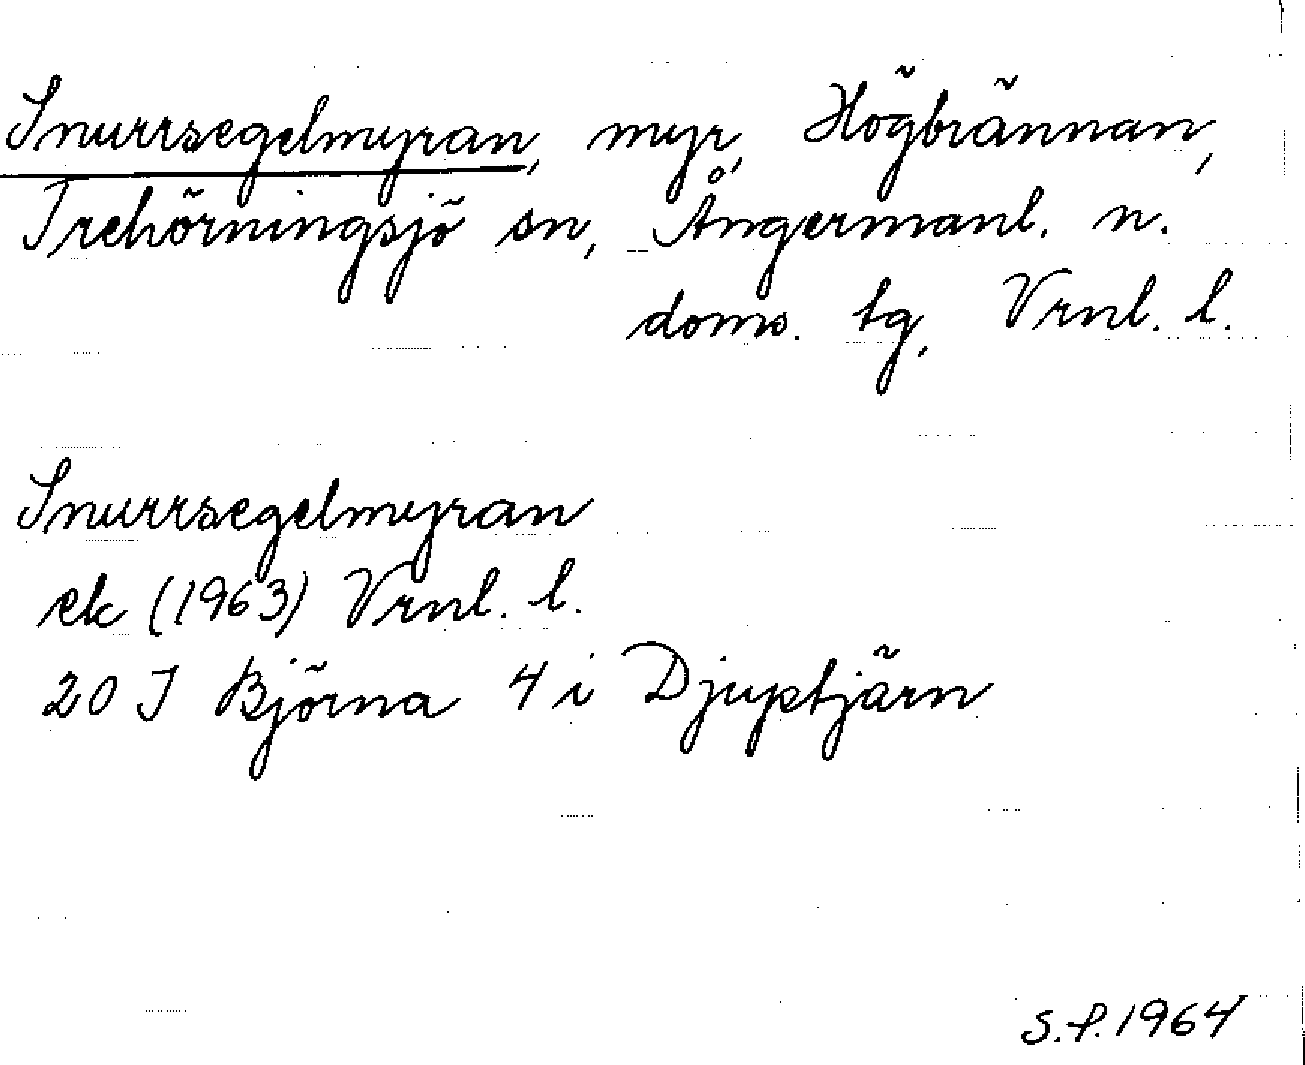 Snurrsegelmyran, myr, Högbrännan,
Trehörningsjö sn, Ångermanl. n.
doms. tg, Vrnl. l.
Snurrsegelmyran
ek (1963) Vrnl. l.
20 I Björna 4 i Djuptjärn
S.P. 1964